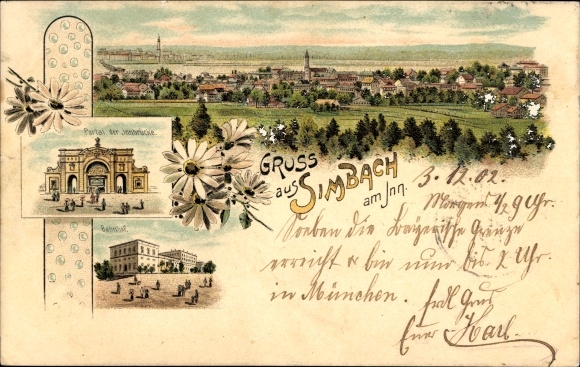 Portal der Innbrücke.
Bahnhof.
GRUSS
aus SIMBACH
am Inn.
3.12.02.
Morgens ½ 9 Uhr.
Soeben die bayerische Grenze
erreicht & bin nun bis 2 Uhr.
in München. Frdl Grus
Euer Karl.